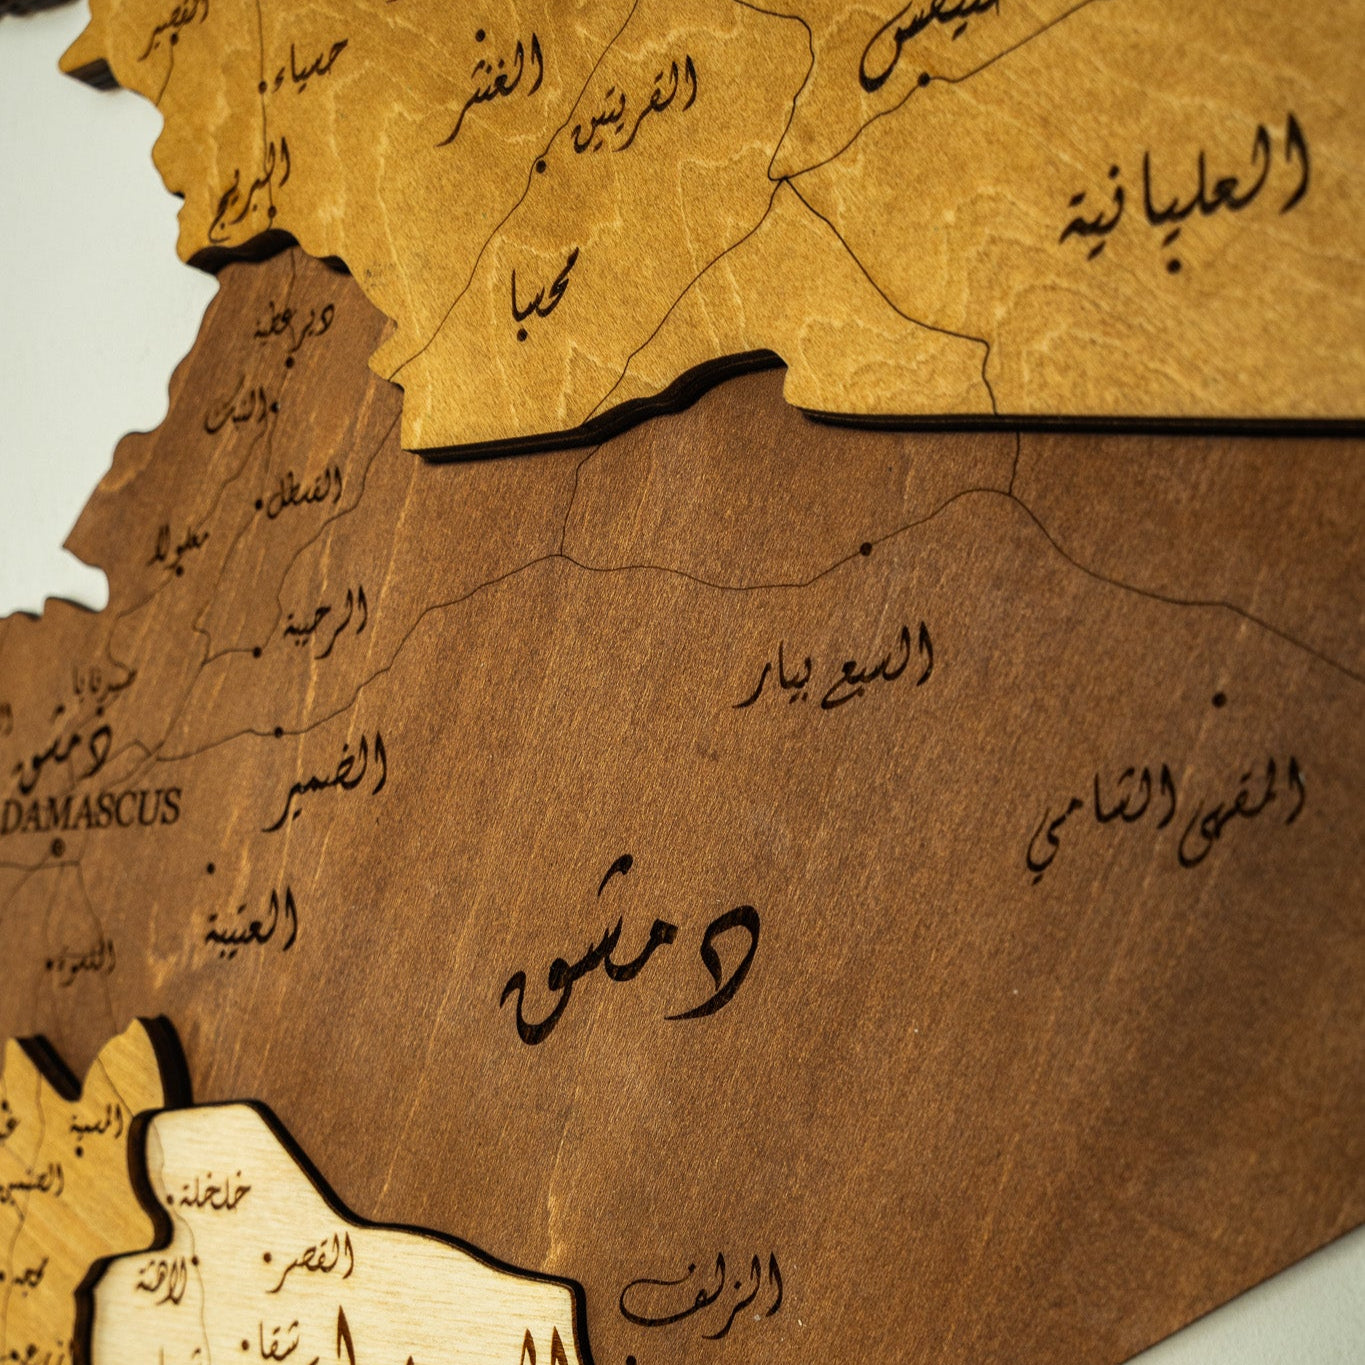 القصير
حسياء
الغنثر
القريتين
البريج
العليانية
محسا
دير عطية
النبك
القسطل
معلولا
الرحيبة
السبع بيار
صيدنايا
دمشق
DAMASCUS
الضمير
المقهى الشامي
العتيبة
دمشق
المسمية
الصنمين
خلخلة
القصر
لاهثة
الزلف
شقا